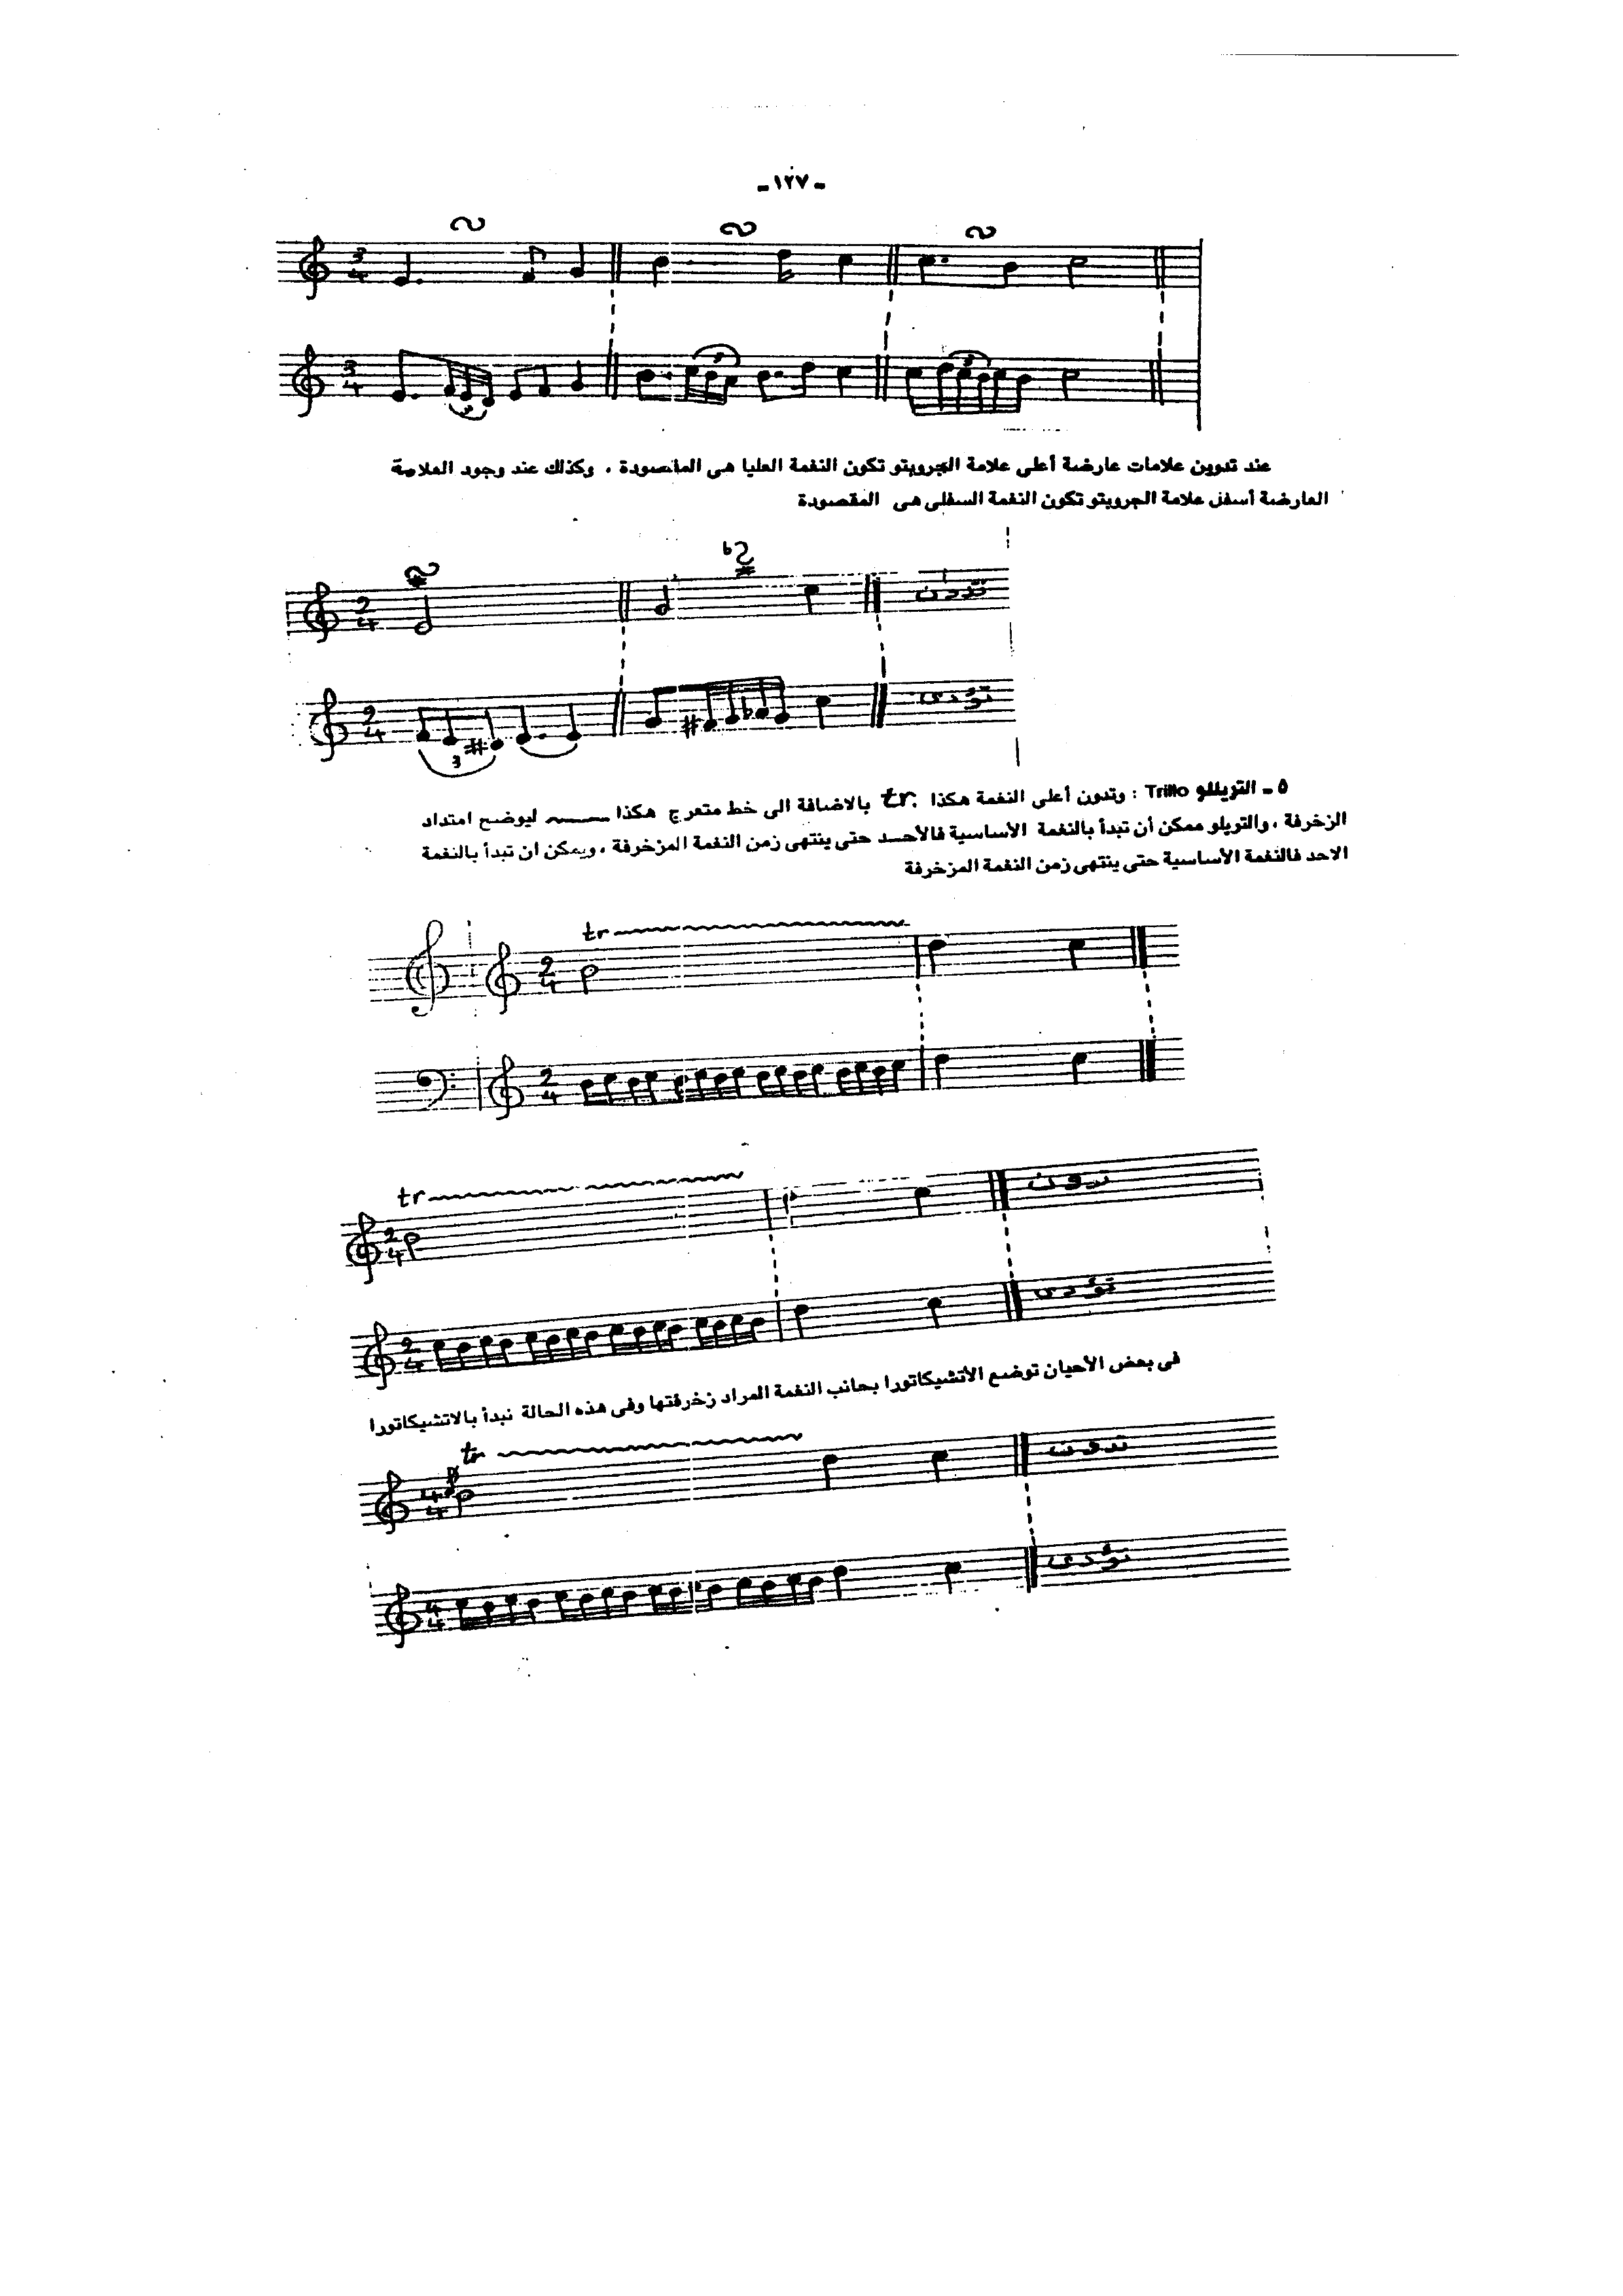 - ١٢٧ -
3 4
3 4
3
3
3
عند تدوين علامات عارضة أعلى علامة الجروبتو تكون النغمة العليا هى المقصودة ، وكذلك عند وجود العلامة
العارضة أسفل علامة الجروبتو تكون النغمة السفلى هى المقصودة
2 4 تدون
2 4 تؤدى
3
٥ - التريللو Trillo : وتدون أعلى النغمة هكذا tr. بالاضافة الى خط متعرج هكذا ليوضح امتداد
الزخرفة ، والتريلو ممكن أن تبدأ بالنغمة الأساسية فالأحـد حتى ينتهى زمن النغمة المزخرفة ، ويمكن ان تبدأ بالنغمة
الاحد فالنغمة الأساسية حتى ينتهى زمن النغمة المزخرفة
tr
2 4
2 4
tr
2 4 تدون
2 4 تؤدى
فى بعض الأحيان توضع الأتشيكاتورا بجانب النغمة المراد زخرفتها وفى هذه الحالة نبدأ بالاتشيكاتورا
tr
4 4 تدون
4 4 تؤدى